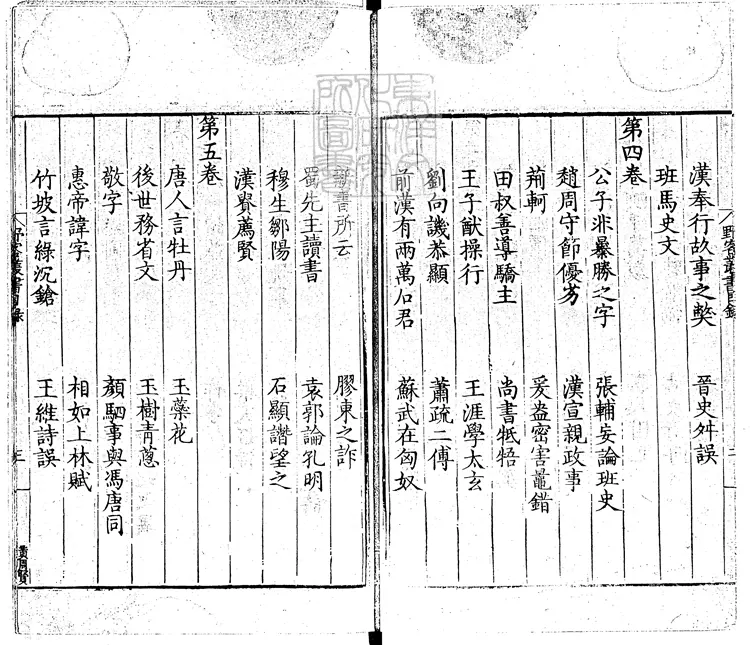 野客叢書目錄
二
漢奉行故事之獘 晉史舛誤
班馬史文
第四卷
公子非暴勝之字 張輔妄論班史
趙周守節優劣 漢宣親政事
荊軻 爰盎密害鼂錯
田叔善導驕主 尚書牴牾
王子猷操行 王涯學太玄
劉向譏恭顯 蕭疏二傅
前漢有兩萬石君 蘇武在匈奴
書所云 膠東之詐
蜀先主讀書 袁郭論孔明
穆生鄒陽 石顯譖望之
漢薦賢
第五卷
唐人言牡丹 玉蘂花
後世務省文 玉樹青蔥
敬字 顏駟事與馮唐同
惠帝諱字 相如上林賦
竹坡言綠沉鎗 王維詩誤
野客叢書目錄
三
黃周賢